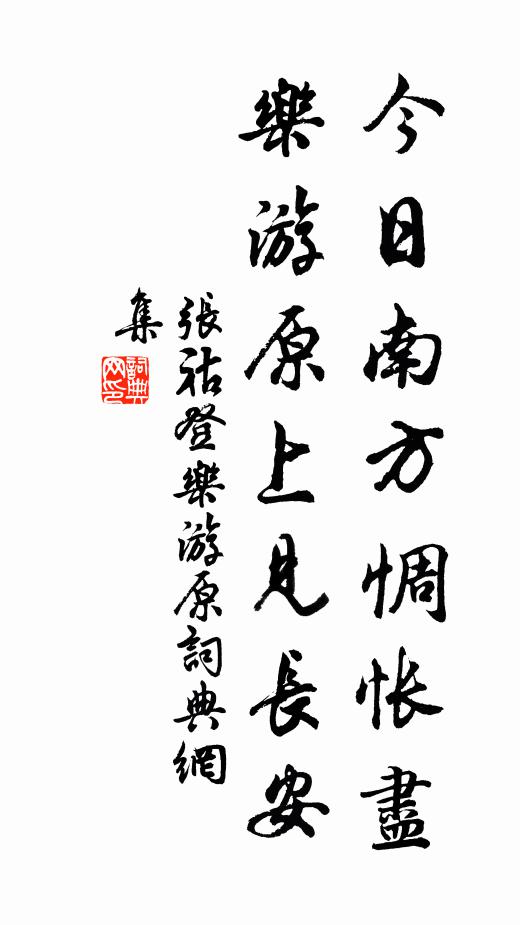 今日南方惆怅盡
樂游原上見長安
張祜登樂游原詞典網
集
詞典
网印